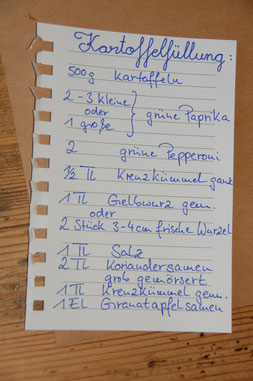 Kartoffelfüllung:
500g Kartoffeln
2-3 kleine
oder } grüne Paprika
1 große
2 grüne Pepperoni
½ TL Kreuzkümmel ganz
1 TL Gelbwurz gem.
oder
2 Stück 3-4cm frische Wurzel
1 TL Salz
2 TL Koriandersamen
grob gemörsert
1 TL Kreuzkümmel gem.
1 EL Granatapfelsamen